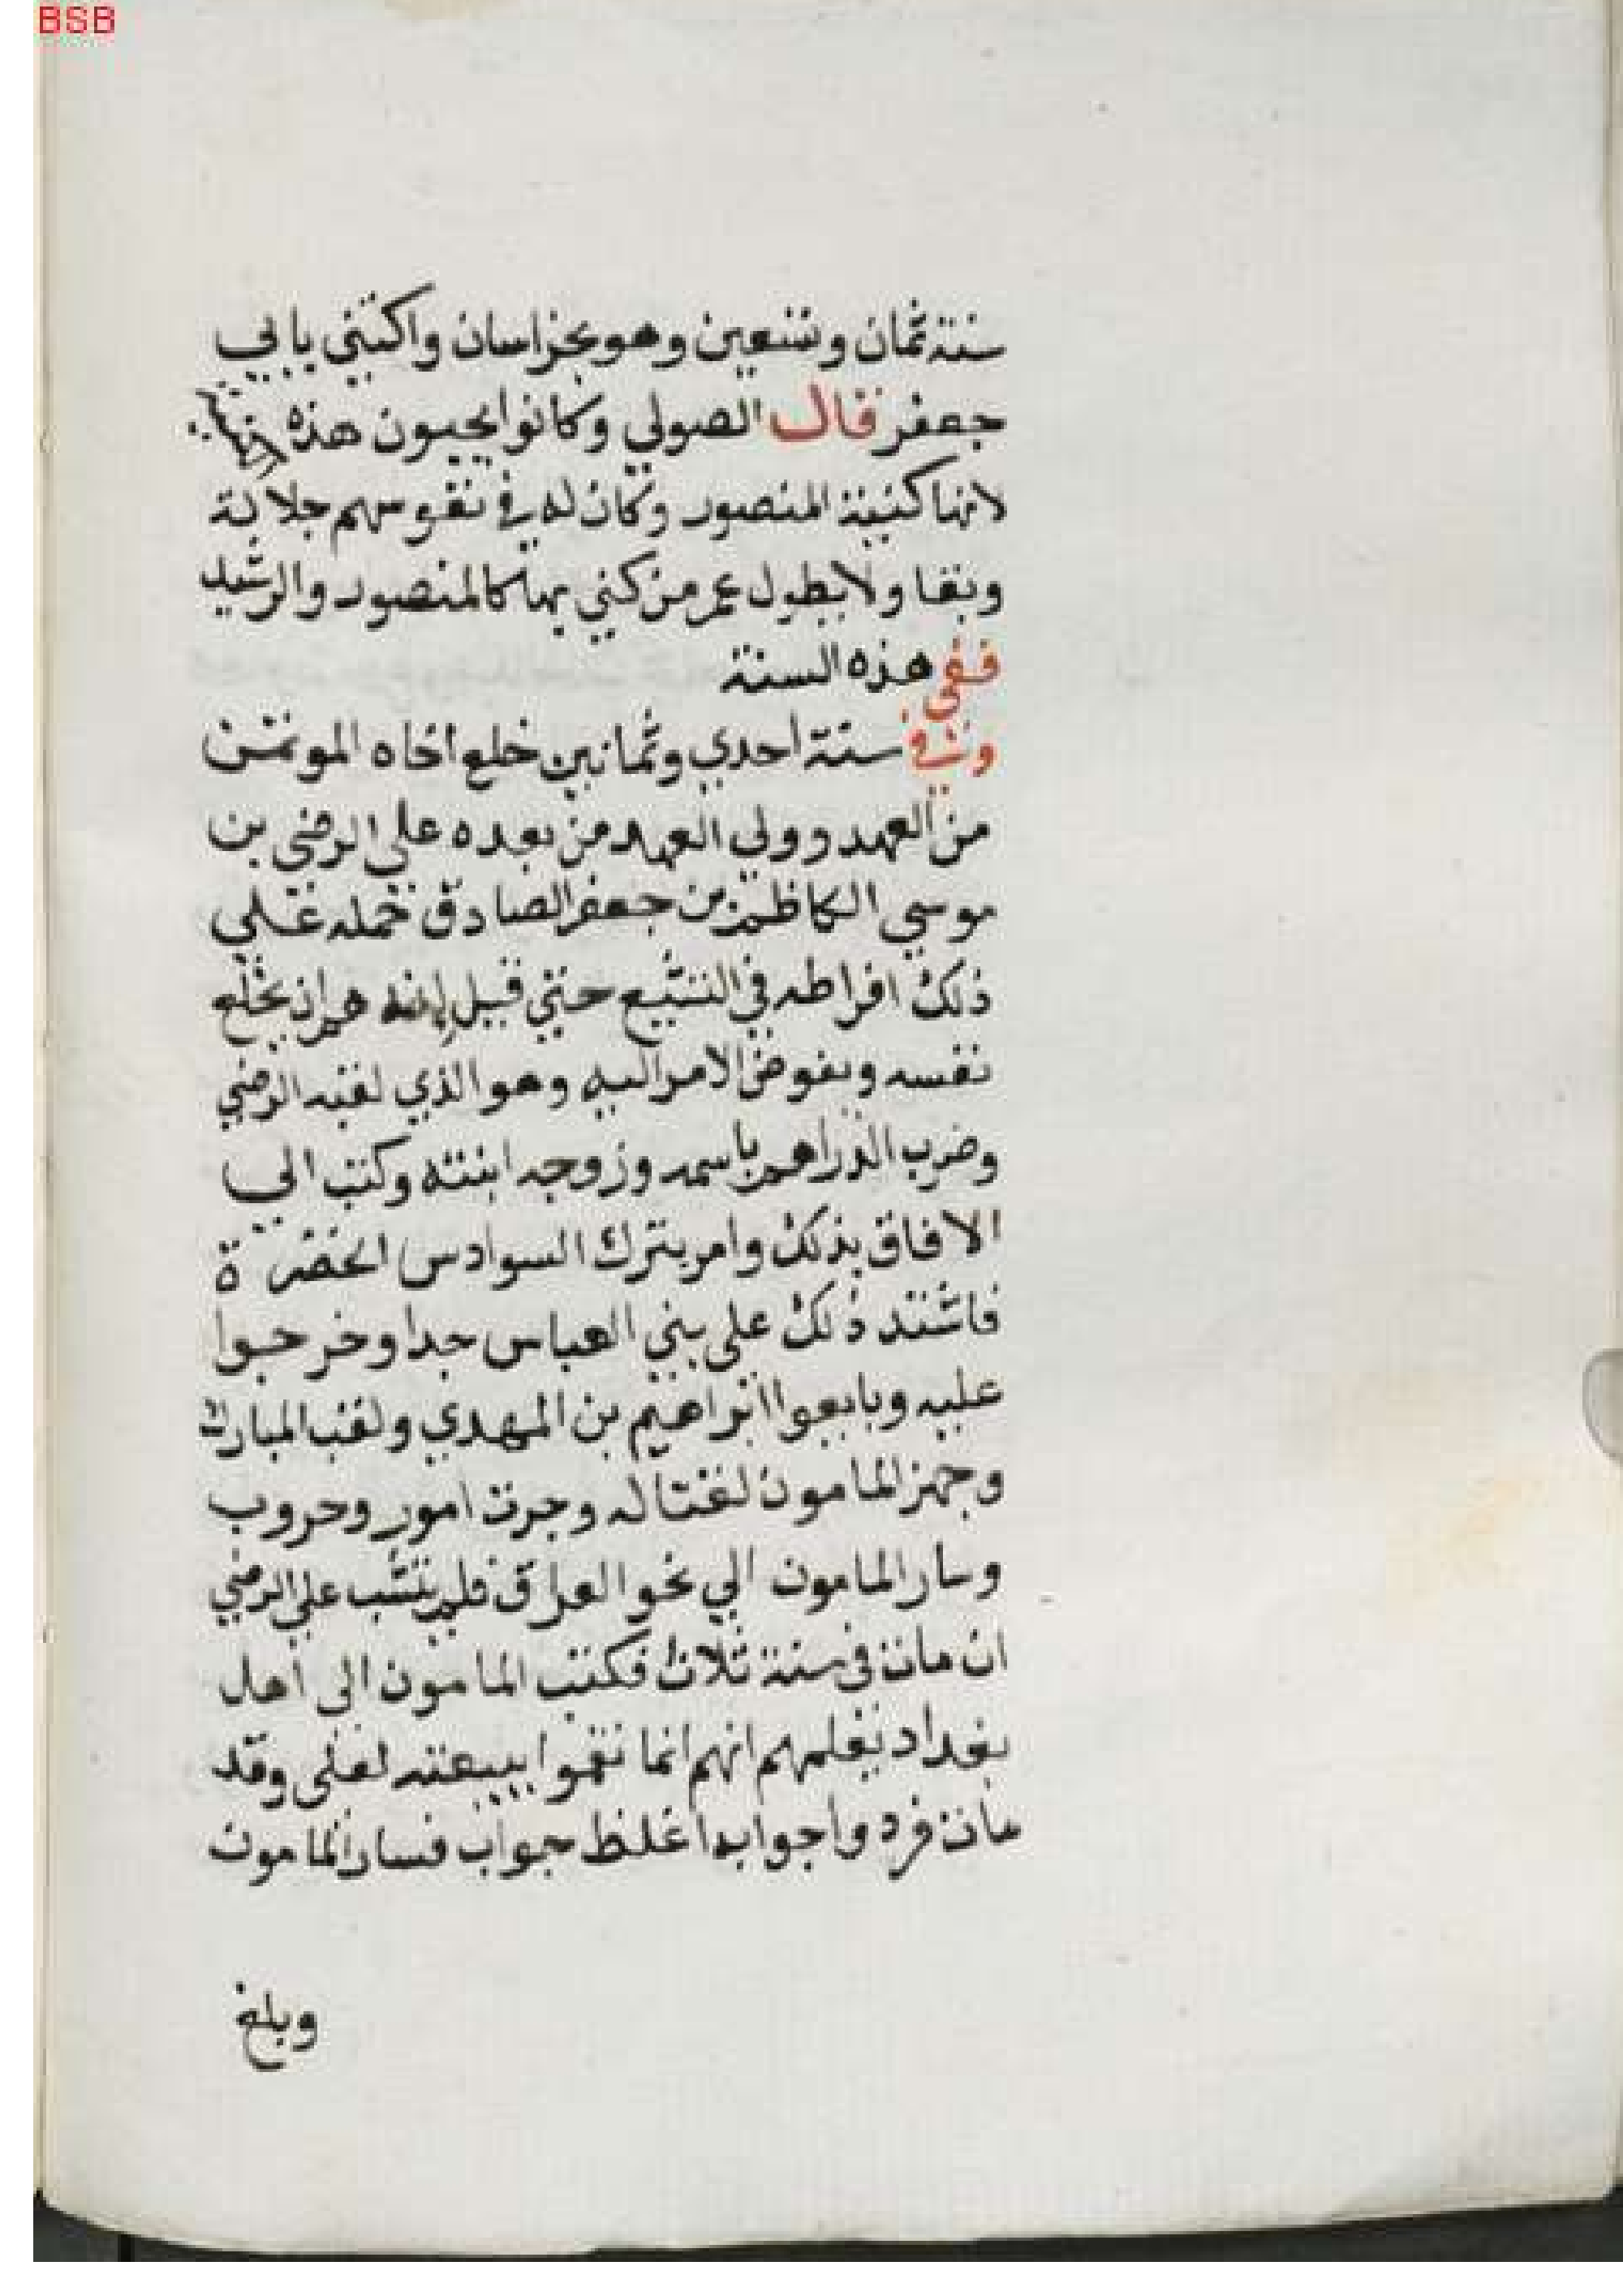 BSB
سنة ثمان وتسعين وهو بخراسان واكتني بابي
جعفر قال الصولي وكانوا يحبون هذه الكنية
لانها كنية المنصور وكان لها في نفوسهم جلالة
وبقا ولا بطول عمر من كني بها كالمنصور والرشيد
ففي هذه السنة
وفي سنة احدي وثمانين خلع اخاه الموتمن
من العهد وولي العهد من بعده علي الرضي بن
موسي الكاظم بن جعفر الصادق حمله علي
ذلك افراطه في التشيع حتي قيل انه هم ان يخلع
نفسه ويفوض الامر اليه وهو الذي لقبه الرضي
وضرب الدراهم باسمه وزوجه ابنته وكتب الي
الافاق بذلك وامر بترك السواد س الخضرة
فاشتد ذلك علي بني العباس جدا وخرجوا
عليه وبايعوا ابراهيم بن المهدي ولقب المبارك
وجهز المامون لقتاله وجرت امور وحروب
وسار المامون الي نحو العراق فلم ينشب علي الرضي
ان مات في سنة ثلاث فكتب المامون الى اهل
بغداد يعلمهم انهم انما نقموا ببيعته لعلى وقد
مات فردوا جوابه اغلظ جواب فسار المامون
وبلغ